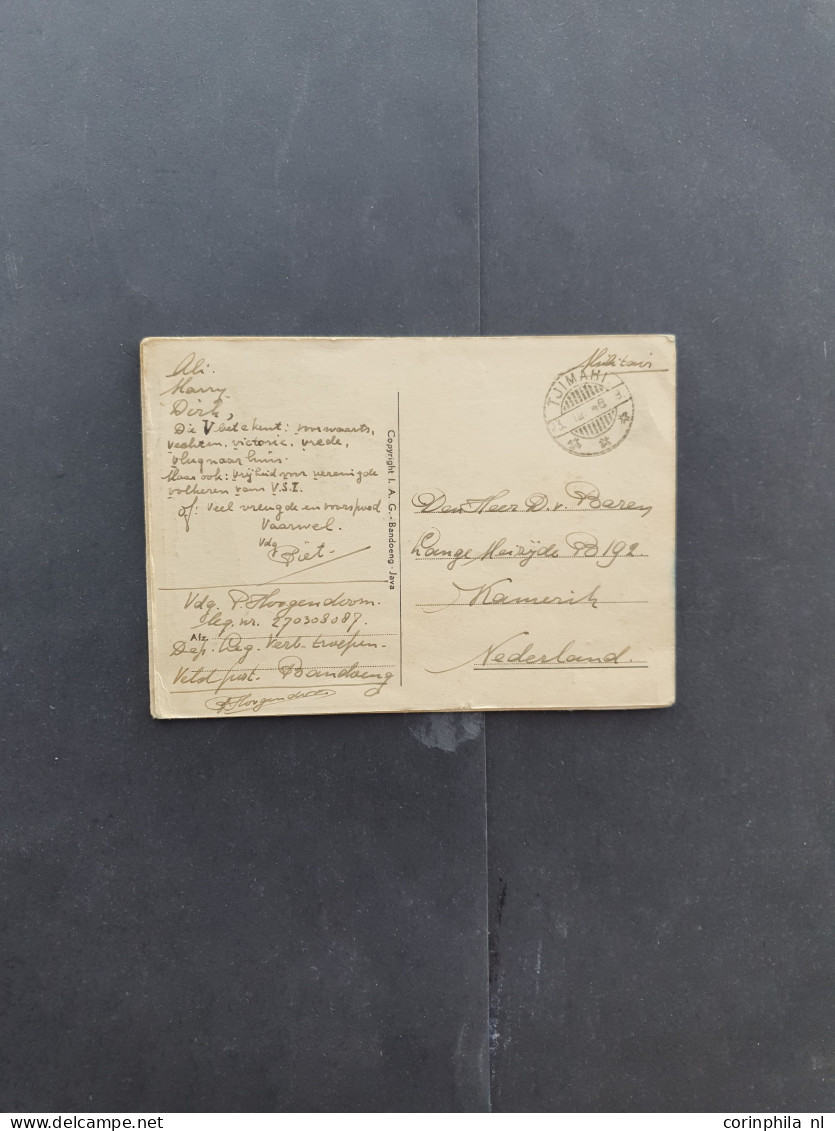 Ali.
Harry
Dirk,
Die V betekent: voorwaarts,
vechten, victorie, vrede,
vlug naar huis.
Maar ook: vrijheid voor verenigde
volkeren van V.S.I.
of: veel vreugde en voorspoed
Vaarwel.
Vdg
Piet
Vdg. P. Hoogendoorn.
Sleg. nr. 270308087.
Afz.
Dep. Aug. Verb. troepen.
Veldpost. Bandoeng
P. Hoogendoorn
Copyright I. A. G. - Bandoeng - Java
Militair
TJIMAHI
Den Heer D. v. Baren
Lange Meizijde B192.
Kamerik
Nederland.
corinphila nl